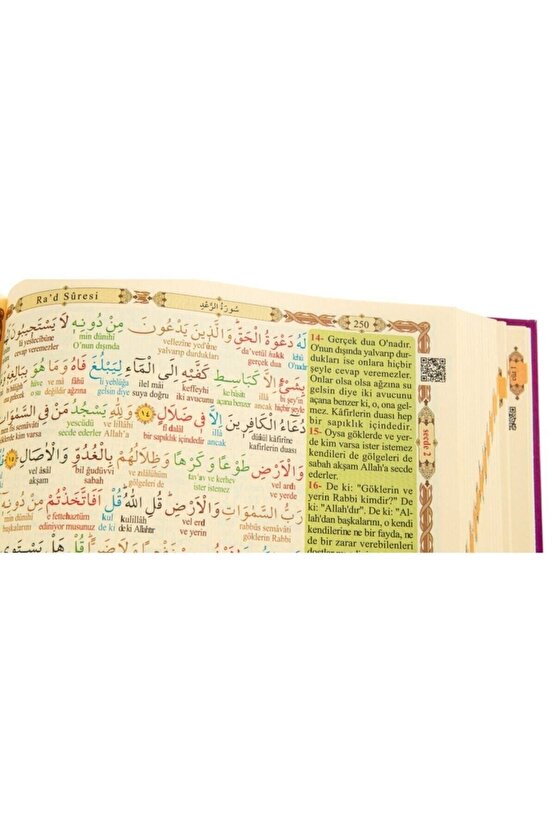 Ra'd Sûresi
سُورَةُ الرَّعْدِ
250
لَهُ دَعْوَةُ الْحَقِّ وَالَّذِينَ يَدْعُونَ مِنْ دُونِهِ لَا يَسْتَجِيبُونَ
lehû da'vetül hakk vellezîne yed'ûne min dûnihî lâ yestecîbûne
O'nadır gerçek dua yalvarıp durdukları O'nun dışında cevap veremezler
بِشَيْءٍ إِلَّا كَبَاسِطِ كَفَّيْهِ إِلَى الْمَاءِ لِيَبْلُغَ فَاهُ وَمَا هُوَ بِبَالِغِهِ
bi şey'in illâ ke bâsitı keffeyhi ilel mâi li yeblüğa fâhü ve mâ hüve
hiçbir şeyle ancak açana benzer iki avucunu suya doğru gelsin diye ağzına değildir o su
دُعَاءُ الْكَافِرِينَ إِلَّا فِي ضَلَالٍ ﴿١٤﴾ وَلِلَّهِ يَسْجُدُ مَنْ فِي السَّمٰوَاتِ
düâül kâfirîne illâ fî dalâl ve lillâhi yescüdü
kâfirlerin duası ancak bir sapıklık içindedir Allah'a secde ederler kim varsa
وَالْأَرْضِ طَوْعًا وَكَرْهًا وَظِلَالُهُمْ بِالْغُدُوِّ وَالْآصَالِ
vel ardı tav'av ve kerhev ve zılâlühüm bil ğudüvvi vel âsâl
ve yerde ister istemez ve gölgeleri de sabah akşam
رَبُّ السَّمٰوَاتِ وَالْأَرْضِ قُلِ اللّٰهُ قُلْ أَفَاتَّخَذْتُمْ مِنْ دُونِهِ
rabbüs semâvâti vel erd kulillâh kul e fettehaztüm min dûnihî
göklerin Rabbi ve yerin de ki Allah'tır de ki ediniyor musunuz
قُلْ هَلْ يَسْتَوِي
14- Gerçek dua O'nadır.
O'nun dışında yalvarıp dur-
dukları ise onlara hiçbir
şeyle cevap veremezler.
Onlar olsa olsa ağzına su
gelsin diye iki avucunu
açana benzer ki, o, ona gel-
mez. Kâfirlerin duası hep
bir sapıklık içindedir.
15- Oysa göklerde ve yer-
de kim varsa ister istemez
kendileri de gölgeleri de
sabah akşam Allah'a secde
ederler.
16- De ki: "Göklerin ve
yerin Rabbi kimdir?" De
ki: "Allah'dır". De ki: "Al-
lah'dan başkalarını, o kendi
kendilerine ne bir fayda, ne
de bir zarar verebilenleri
secde 2